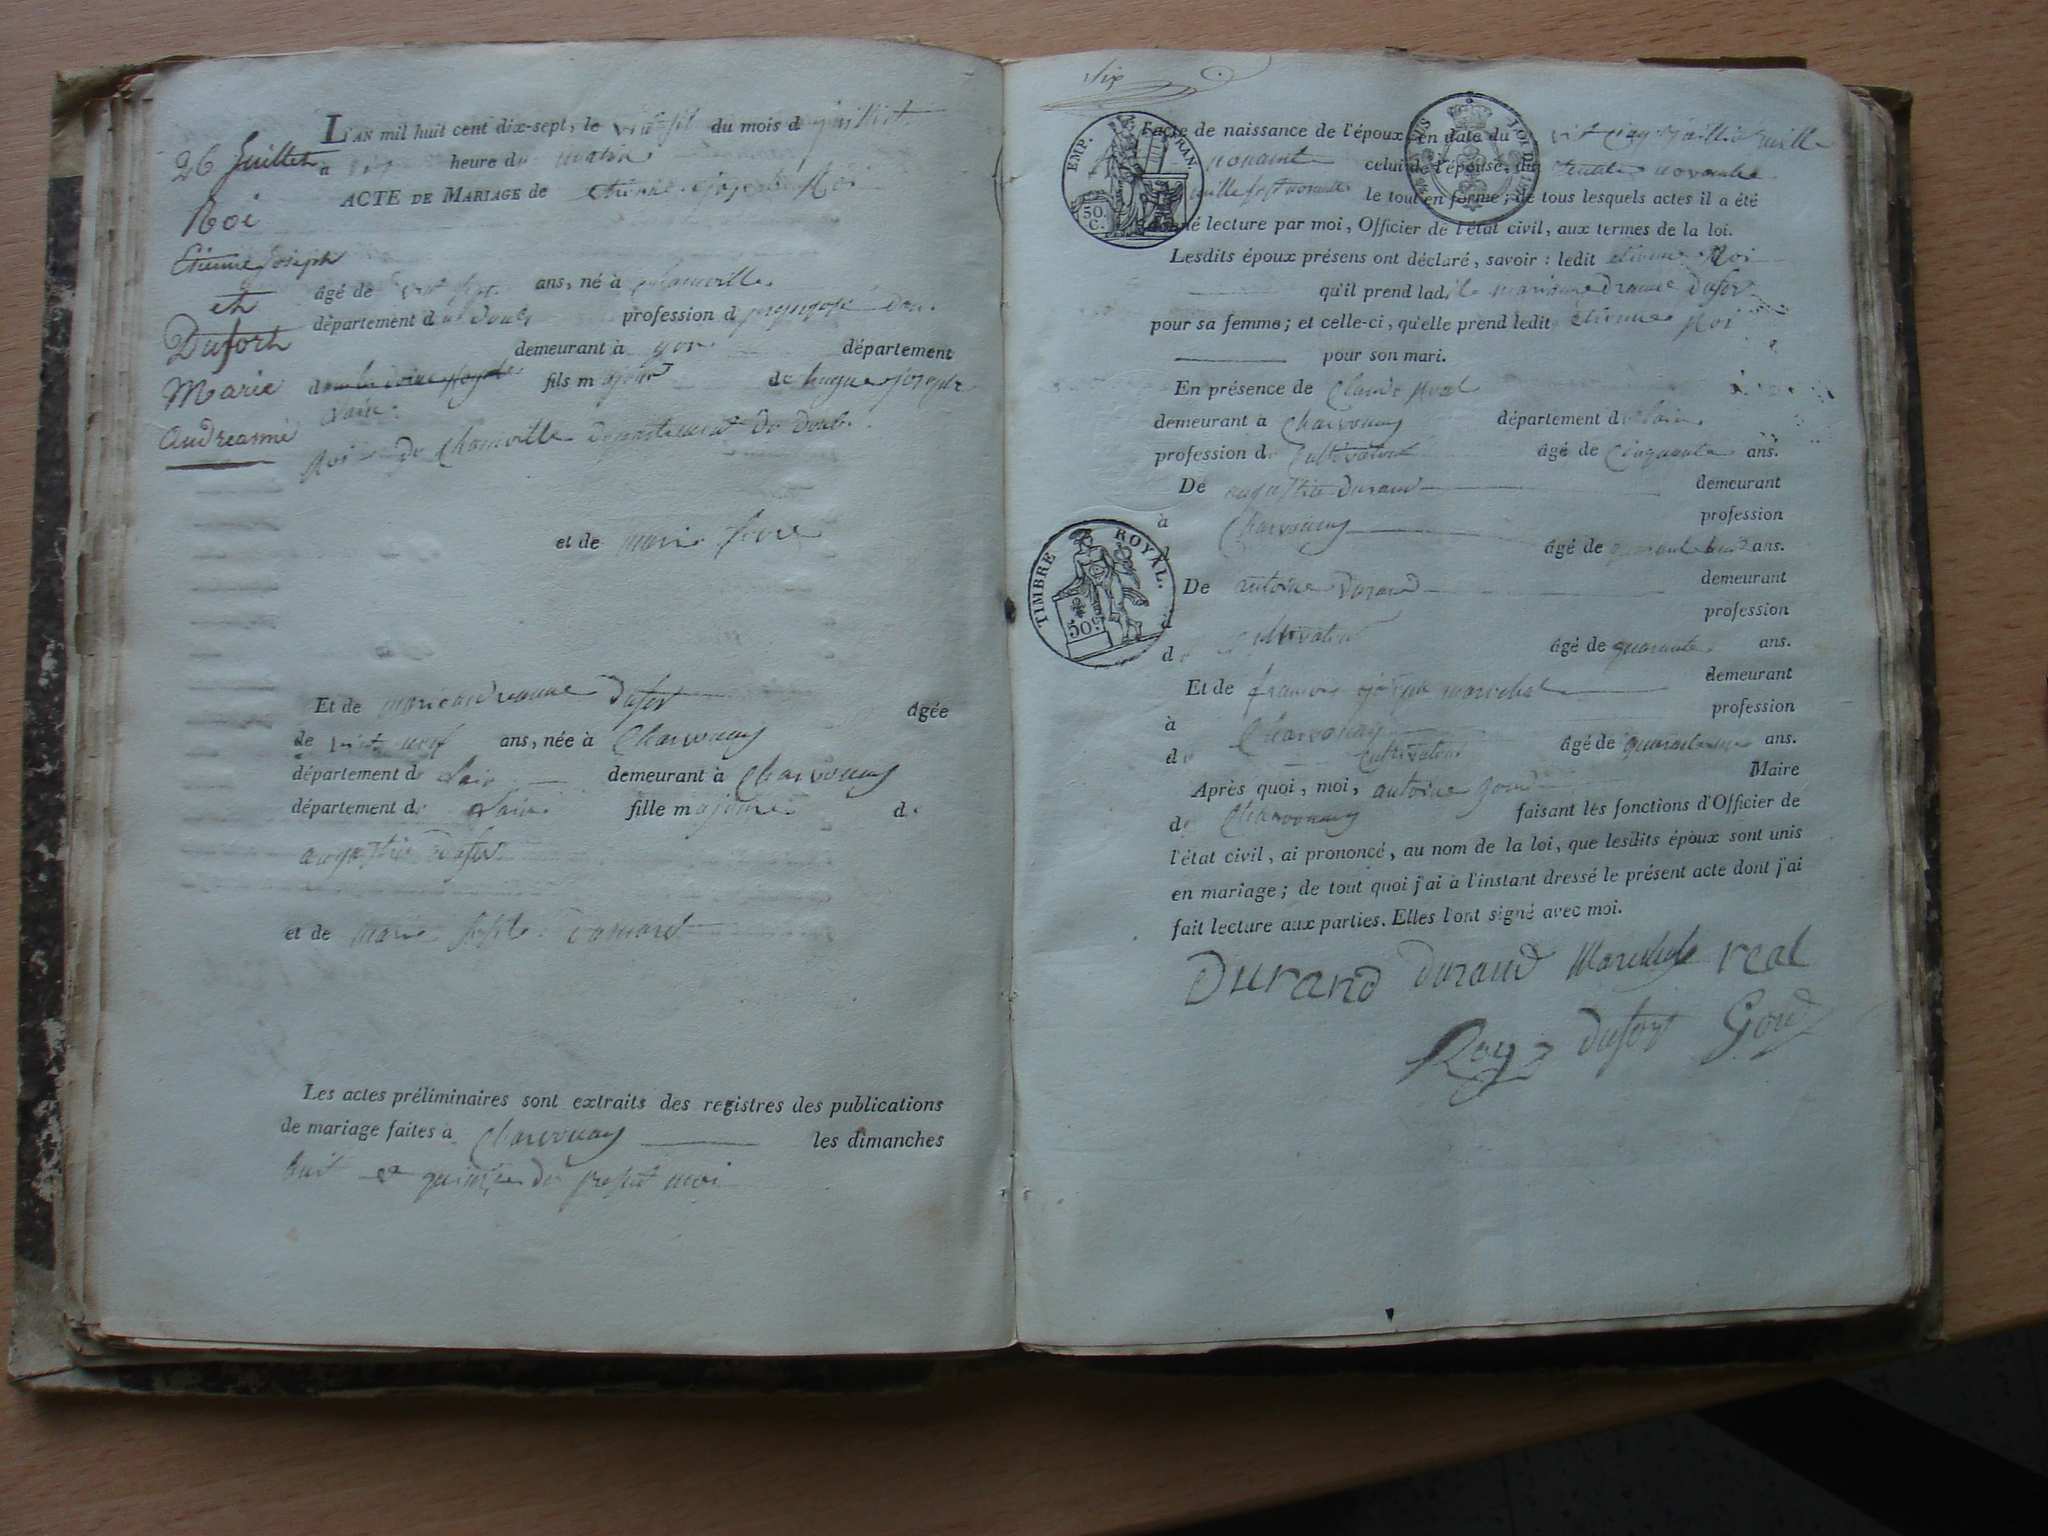 26 Juillet
Roi
Etienne Joseph
et
Dufort
Marie
andreanne
L'AN mil huit cent dix-sept, le vint six du mois de juillet
à dix heure du matin
ACTE DE MARIAGE de etienne joseph Roi
âgé de vint sept ans, né à Chamville
département du doub profession d
demeurant à département
fils majeur de hugue joseph
Roi de Chamville departement du doub.
et de marie
Et de marie andreanne dufort âgée
de vint neuf ans, née à Charvonay
département de Lain demeurant à Charvonay
département de Lain fille majeure de
augustin dufort
et de marie
Les actes préliminaires sont extraits des registres des publications
de mariage faites à Charvonay les dimanches
huit et quinze du present moi
Six
EMP. FRAN
50. C.
l'acte de naissance de l'époux en date du vint cinq juillie mille
nonante celui de l'épouse, du novembre
mille sept le tout en forme; de tous lesquels actes il a été
donné lecture par moi, Officier de l'état civil, aux termes de la loi.
Lesdits époux présens ont déclaré, savoir: ledit etienne Roi
qu'il prend lad.te marianne dreanne dufort
pour sa femme; et celle-ci, qu'elle prend ledit etienne Roi
pour son mari.
En présence de Claude Real
demeurant à Charvonay département de Lain
profession de Cultivateur âgé de cinquante ans.
De augustin durand demeurant
à Charvonay profession
âgé de quarant huit ans.
TIMBRE ROYAL.
50.
De antoine durand demeurant
profession
de Cultivateur âgé de quarante ans.
Et de francois joseph marechal demeurant
à Charvonay profession
de Cultivateur âgé de ans.
Après quoi, moi, antoine Goud Maire
de Charvonay faisant les fonctions d'Officier de
l'état civil, ai prononcé, au nom de la loi, que lesdits époux sont unis
en mariage; de tout quoi j'ai à l'instant dressé le présent acte dont j'ai
fait lecture aux parties. Elles l'ont signé avec moi.
Durand durand Marechal real
Roy dufort Goud